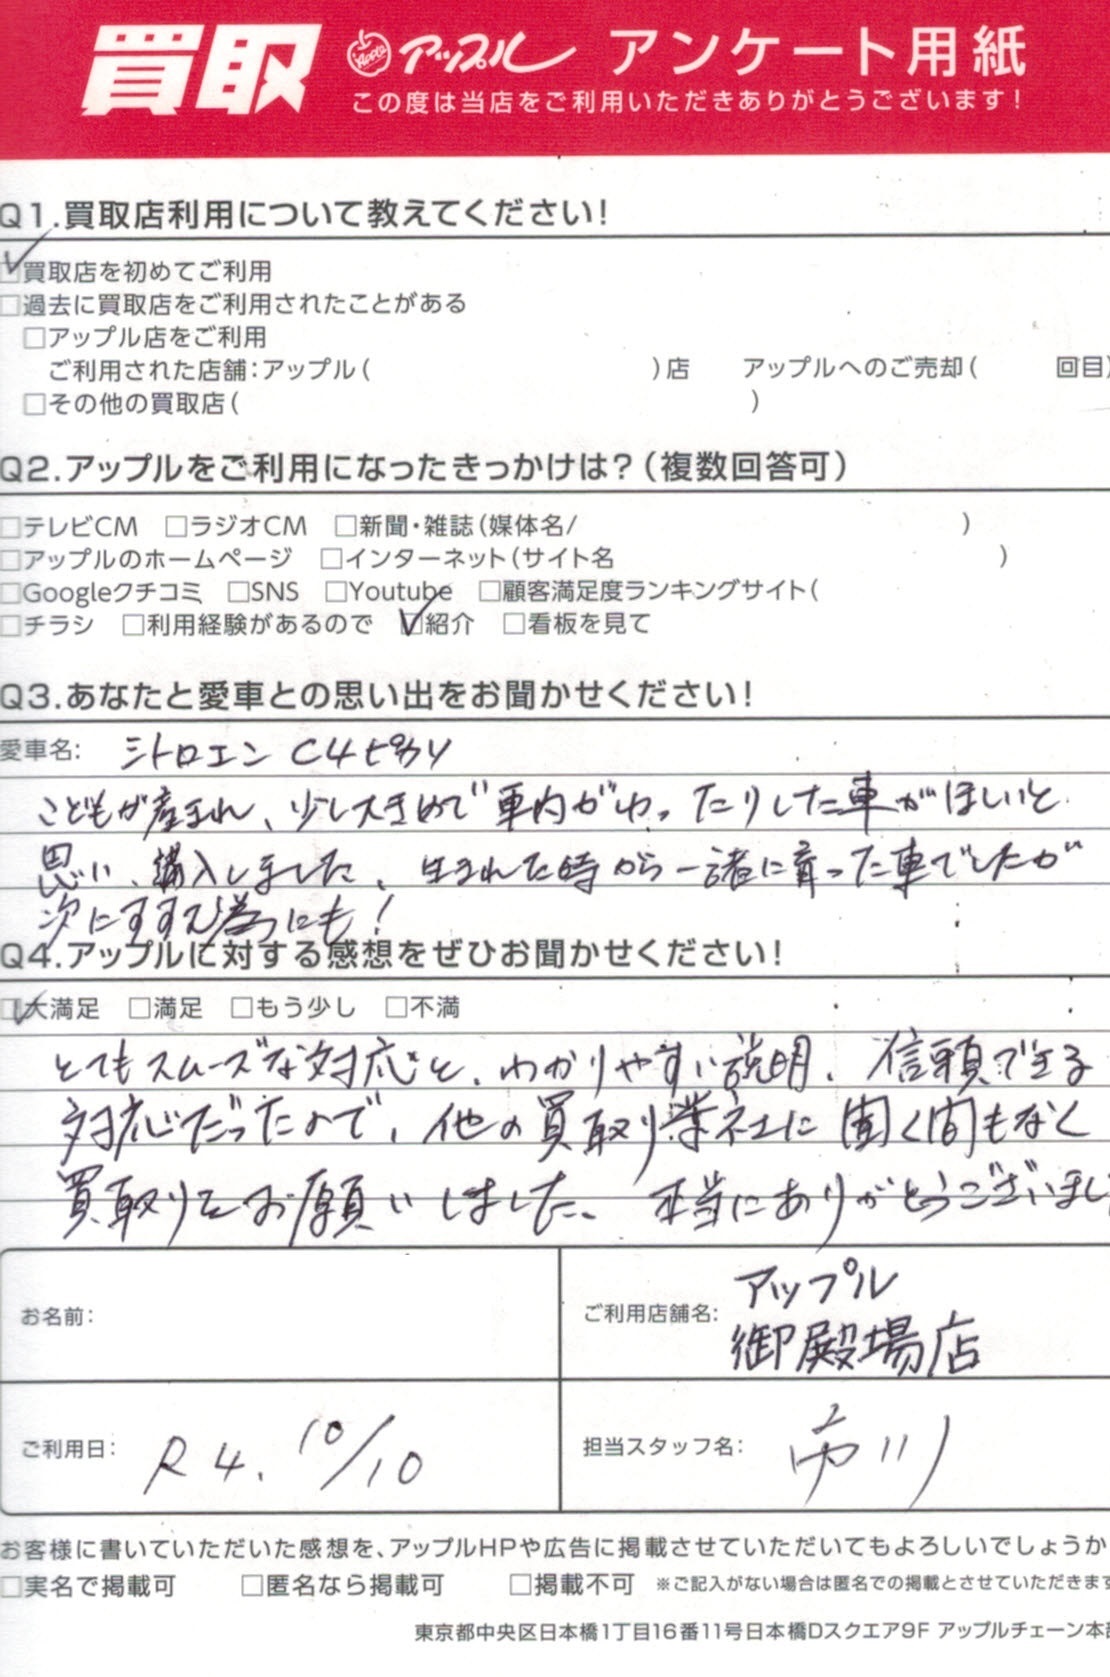 買取 Apple アップル アンケート用紙
この度は当店をご利用いただきありがとうございます!
Q1.買取店利用について教えてください!
☑買取店を初めてご利用
□過去に買取店をご利用されたことがある
□アップル店をご利用
ご利用された店舗:アップル( )店 アップルへのご売却( 回目)
□その他の買取店( )
Q2.アップルをご利用になったきっかけは?(複数回答可)
□テレビCM □ラジオCM □新聞・雑誌(媒体名/ )
□アップルのホームページ □インターネット(サイト名 )
□Googleクチコミ □SNS □Youtube □顧客満足度ランキングサイト(
□チラシ □利用経験があるので ☑紹介 □看板を見て
Q3.あなたと愛車との思い出をお聞かせください!
愛車名: シトロエン C4ピカソ
こどもが産まれ、少し大きめで車内がゆったりした車がほしいと
思い、購入しました。生まれた時から一緒に育った車でしたが
次にすすむ為にも!
Q4.アップルに対する感想をぜひお聞かせください!
☑大満足 □満足 □もう少し □不満
とてもスムーズな対応と、わかりやすい説明、信頼できる
対応だったので、他の買取り業社に聞く間もなく
買取りをお願いしました。本当にありがとうございまし
お名前:
ご利用店舗名: アップル
御殿場店
ご利用日: R4. 10/10
担当スタッフ名: 市川
お客様に書いていただいた感想を、アップルHPや広告に掲載させていただいてもよろしいでしょうか
□実名で掲載可 □匿名なら掲載可 □掲載不可 ※ご記入がない場合は匿名での掲載とさせていただきます
東京都中央区日本橋1丁目16番11号日本橋Dスクエア9F アップルチェーン本部